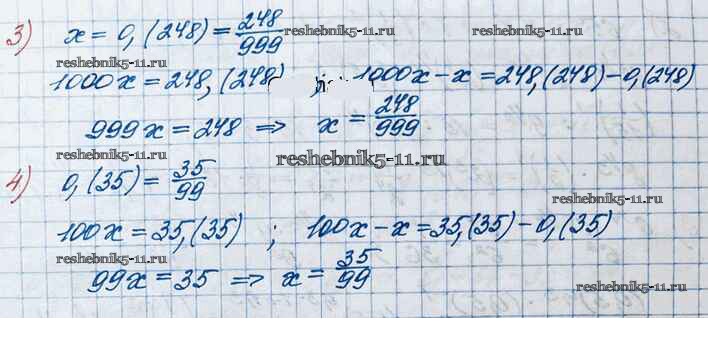 3) x = 0,(248) = 248/999
reshebnik5-11.ru
reshebnik5-11.ru
1000x = 248,(248) ; 1000x - x = 248,(248) - 0,(248)
reshebnik5-11.ru
999x = 248 => x = 248/999
reshebnik5-11.ru
reshebnik5-11.ru
4) 0,(35) = 35/99
reshebnik5-11.ru
100x = 35,(35) ; 100x - x = 35,(35) - 0,(35)
reshebnik5-11.ru
99x = 35 => x = 35/99
reshebnik5-11.ru